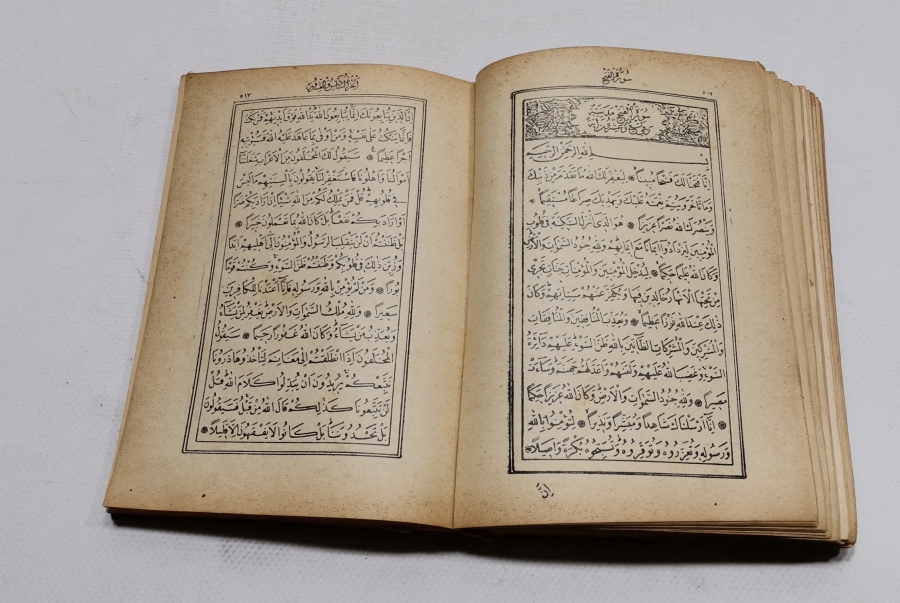 سُورَةُ الْفَتْحِ
سُورَةُ الْفَتْحِ مَدَنِيَّةٌ
بِسْمِ اللهِ الرَّحْمٰنِ الرَّحِيمِ
اِنَّا فَتَحْنَا لَكَ فَتْحًا مُبِينًا لِيَغْفِرَ لَكَ اللهُ مَا تَقَدَّمَ مِنْ ذَنْبِكَ
وَمَا تَأَخَّرَ وَيُتِمَّ نِعْمَتَهُ عَلَيْكَ وَيَهْدِيَكَ صِرَاطًا مُسْتَقِيمًا
وَيَنْصُرَكَ اللهُ نَصْرًا عَزِيزًا هُوَ الَّذِى اَنْزَلَ السَّكِينَةَ فِى قُلُوبِ
الْمُؤْمِنِينَ لِيَزْدَادُوا اِيمَانًا مَعَ اِيمَانِهِمْ وَلِلهِ جُنُودُ السَّمٰوَاتِ وَالْاَرْضِ
وَكَانَ اللهُ عَلِيمًا حَكِيمًا لِيُدْخِلَ الْمُؤْمِنِينَ وَالْمُؤْمِنَاتِ جَنَّاتٍ تَجْرِى
مِنْ تَحْتِهَا الْاَنْهَارُ خَالِدِينَ فِيهَا وَيُكَفِّرَ عَنْهُمْ سَيِّاٰتِهِمْ وَكَانَ
ذٰلِكَ عِنْدَ اللهِ فَوْزًا عَظِيمًا وَيُعَذِّبَ الْمُنَافِقِينَ وَالْمُنَافِقَاتِ
وَالْمُشْرِكِينَ وَالْمُشْرِكَاتِ الظَّانِّينَ بِاللهِ ظَنَّ السَّوْءِ عَلَيْهِمْ دَائِرَةُ
السَّوْءِ وَغَضِبَ اللهُ عَلَيْهِمْ وَلَعَنَهُمْ وَاَعَدَّ لَهُمْ جَهَنَّمَ وَسَاءَتْ
مَصِيرًا وَلِلهِ جُنُودُ السَّمٰوَاتِ وَالْاَرْضِ وَكَانَ اللهُ عَزِيزًا حَكِيمًا
اِنَّا اَرْسَلْنَاكَ شَاهِدًا وَمُبَشِّرًا وَنَذِيرًا لِتُؤْمِنُوا بِاللهِ
وَرَسُولِهِ وَتُعَزِّرُوهُ وَتُوَقِّرُوهُ وَتُسَبِّحُوهُ بُكْرَةً وَاَصِيلًا
اِنَّ
٥١٣
اِنَّ الَّذِينَ يُبَايِعُونَكَ اِنَّمَا يُبَايِعُونَ اللهَ يَدُ اللهِ فَوْقَ اَيْدِيهِمْ فَمَنْ نَكَثَ
فَاِنَّمَا يَنْكُثُ عَلَى نَفْسِهِ وَمَنْ اَوْفَى بِمَا عَاهَدَ عَلَيْهُ اللهَ فَسَيُؤْتِيهِ
اَجْرًا عَظِيمًا سَيَقُولُ لَكَ الْمُخَلَّفُونَ مِنَ الْاَعْرَابِ شَغَلَتْنَا
اَمْوَالُنَا وَاَهْلُونَا فَاسْتَغْفِرْ لَنَا يَقُولُونَ بِاَلْسِنَتِهِمْ مَا لَيْسَ
فِى قُلُوبِهِمْ قُلْ فَمَنْ يَمْلِكُ لَكُمْ مِنَ اللهِ شَيْئًا اِنْ اَرَادَ بِكُمْ ضَرًّا
اَوْ اَرَادَ بِكُمْ نَفْعًا بَلْ كَانَ اللهُ بِمَا تَعْمَلُونَ خَبِيرًا
بَلْ ظَنَنْتُمْ اَنْ لَنْ يَنْقَلِبَ الرَّسُولُ وَالْمُؤْمِنُونَ اِلٰى اَهْلِيهِمْ اَبَدًا
وَزُيِّنَ ذٰلِكَ فِى قُلُوبِكُمْ وَظَنَنْتُمْ ظَنَّ السَّوْءِ وَكُنْتُمْ قَوْمًا
بُورًا وَمَنْ لَمْ يُؤْمِنْ بِاللهِ وَرَسُولِهِ فَاِنَّا اَعْتَدْنَا لِلْكَافِرِينَ
سَعِيرًا وَلِلهِ مُلْكُ السَّمٰوَاتِ وَالْاَرْضِ يَغْفِرُ لِمَنْ يَشَاءُ
وَيُعَذِّبُ مَنْ يَشَاءُ وَكَانَ اللهُ غَفُورًا رَحِيمًا سَيَقُولُ
الْمُخَلَّفُونَ اِذَا انْطَلَقْتُمْ اِلٰى مَغَانِمَ لِتَأْخُذُوهَا ذَرُونَا
نَتَّبِعْكُمْ يُرِيدُونَ اَنْ يُبَدِّلُوا كَلَامَ اللهِ قُلْ
لَنْ تَتَّبِعُونَا كَذٰلِكُمْ قَالَ اللهُ مِنْ قَبْلُ فَسَيَقُولُونَ
بَلْ تَحْسُدُونَنَا بَلْ كَانُوا لَا يَفْقَهُونَ اِلَّا قَلِيلًا